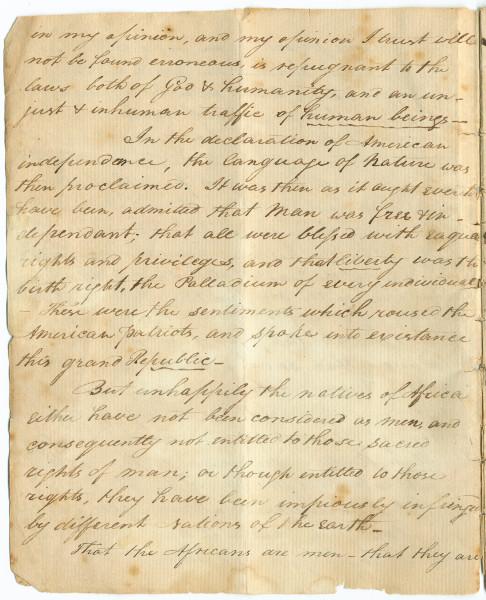 in my opinion, and my opinion I trust will
not be found erroneous, is repugnant to the
laws both of God & humanity, and an un-
just & inhuman traffic of human beings—
In the declaration of American
independence, the language of Nature was
then proclaimed. It was then as it ought ever to
have been, admitted that Man was free & in-
dependant; that all were blessed with equal
rights and privileges, and that liberty was the
birth right, the Palladium of every individual
— These were the sentiments which roused the
American patriots, and spoke into existance
this grand Republic—
But unhappily the natives of Africa
either have not been considered as men, and
consequently not entitled to those sacred
rights of man; or though entitled to those
rights, they have been impiously infringed
by different nations of the earth—
That the Africans are men — that they are